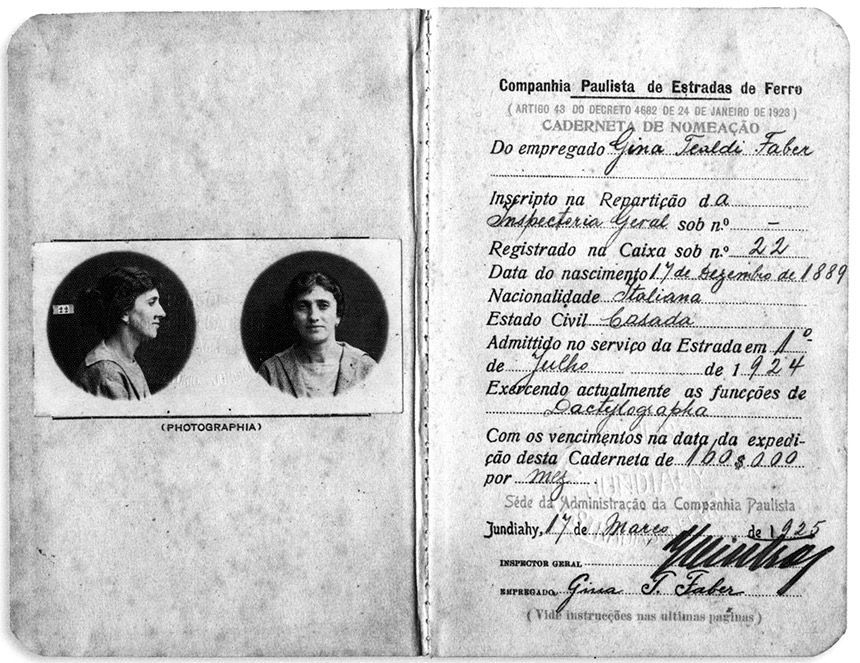 11
(PHOTOGRAPHIA)
Companhia Paulista de Estradas de Ferro
(ARTIGO 43 DO DECRETO 4682 DE 24 DE JANEIRO DE 1923)
CADERNETA DE NOMEAÇÃO
Do empregado Gina Tealdi Faber
Inscripto na Repartição da
Inspectoria Geral sob n.º -
Registrado na Caixa sob n.º 22
Data do nascimento 17 de Dezembro de 1889
Nacionalidade Italiana
Estado Civil Casada
Admittido no serviço da Estrada em 1º
de Julho de 1924
Exercendo actualmente as funcções de
Dactylographa
Com os vencimentos na data da expedi-
ção desta Caderneta de 100$000
por mez
Séde da Administração da Companhia Paulista
Jundiahy, 17 de Março de 1925
INSPECTOR GERAL
EMPREGADO, Gina T. Faber
(Vide instrucções nas ultimas paginas)